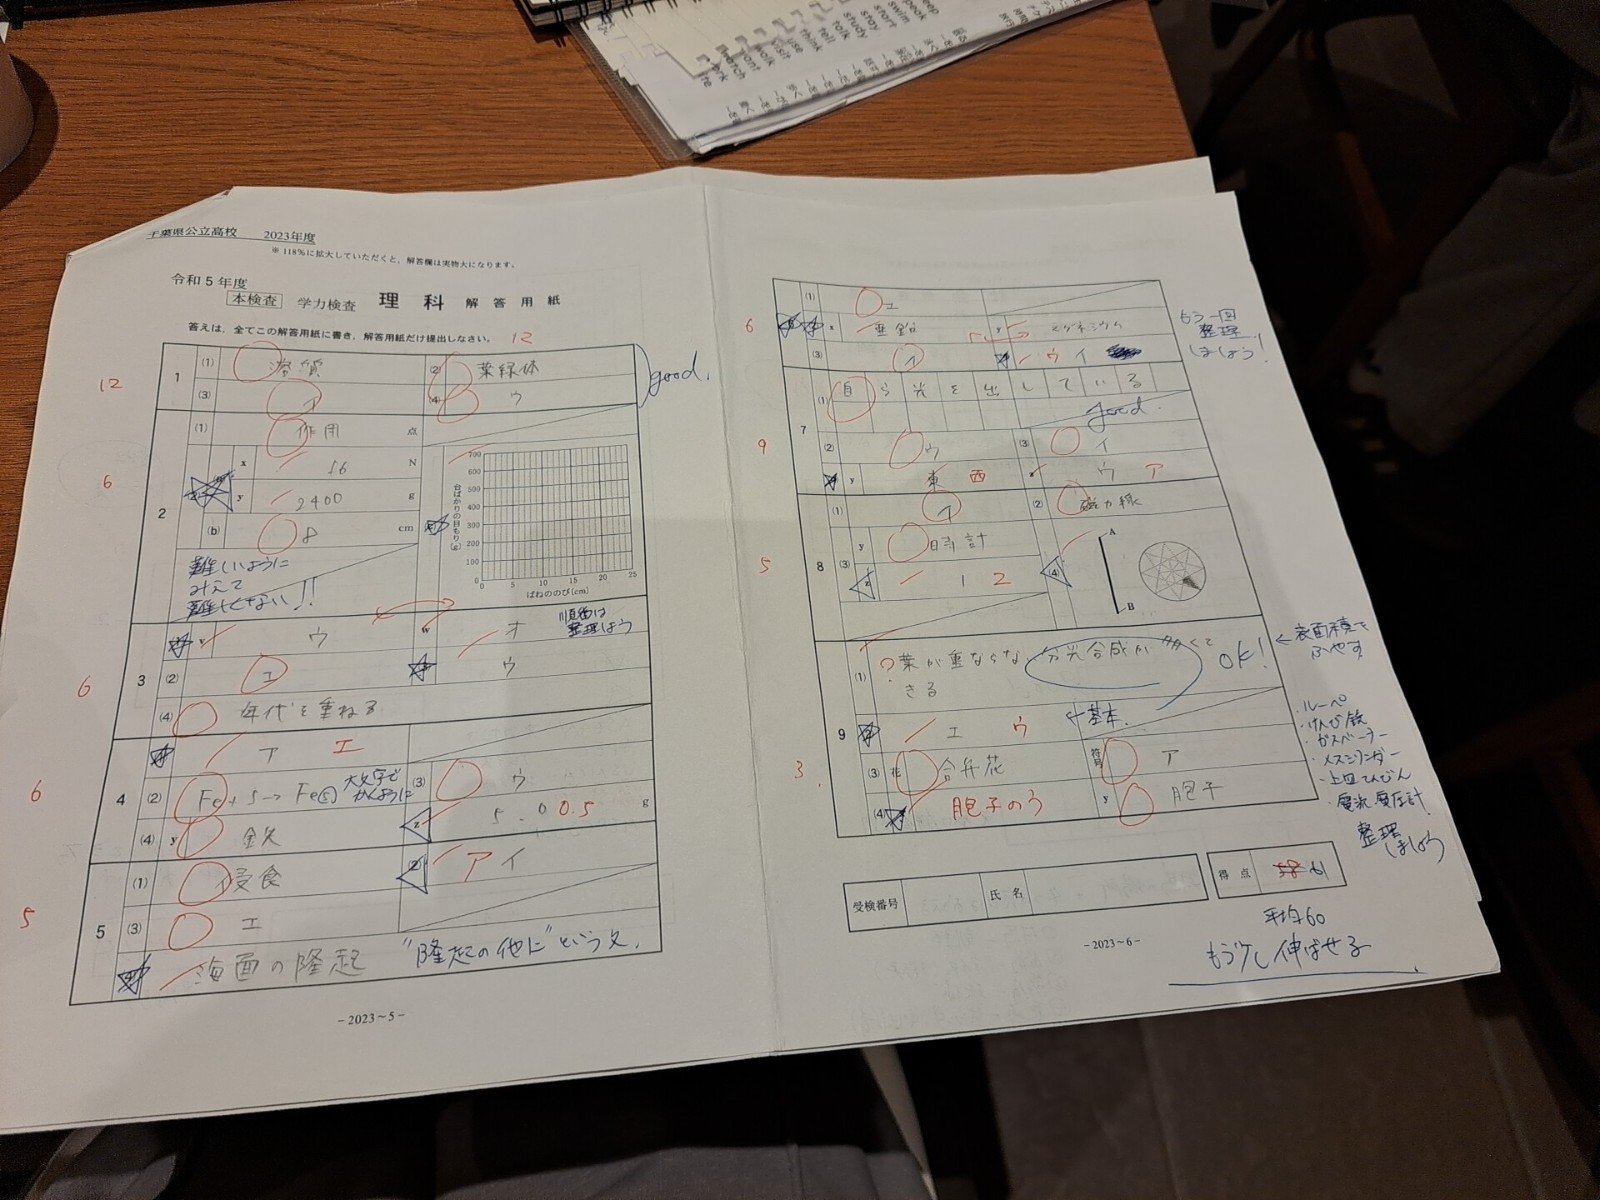 千葉県公立高校 2023年度
※118%に拡大していただくと、解答欄は実物大になります。
令和5年度
本検査 学力検査 理科 解答用紙
答えは、全てこの解答用紙に書き、解答用紙だけ提出しなさい。 12
12 1 (1) 溶質 (2) 葉緑体 good.
(3) イ (4) ウ
6 2 (1) 作用 点
x 16 N
y 2400 g
(b) 8 cm
台ばかりの目もり(g)
700
600
500
400
300
200
100
0
0 5 10 15 20 25
ばねののび(cm)
難しいように
みえて
難しくない!!
順番は
整理しよう
6 3 v ウ w オ
(2) エ ウ
(4) 年代を重ねる
6 4 ア エ
(2) Fe + S → FeS 大文字で
かくように
(3) ウ
(4) y 鉄 z 5.0 0.5 g
5 5 (1) 侵食 (2) ア イ
(3) エ
海面の隆起 "隆起の他に"という文、
-2023~5-
(1) エ
6 x 亜鉛 y マグネシウム
(3) イ ウ イ
もう一回
整理
しましょう!
9 7 (1) 自ら光を出している
good.
(2) ウ (3) イ
y 東 西 ウ ア
5 8 (1) イ (2) 磁力線
(3) y 時計
z 1 2 (4) A
B
3. 9 (1) ? 葉が重ならな 分光合成が 多くて
きる
OK! ← 表面積を
ふやす
エ ウ 基本.
(3) 花 合弁花 符号 ア
(4) 胞子のう y 胞子
・ルーペ
・けんび鏡
・ガスバーナー
・メスシリンダー
・上皿てんびん
・電流電圧計
整理
しましょう
受検番号 氏名 得点 58 61
平均60
-2023~6-
もう少し伸ばせる